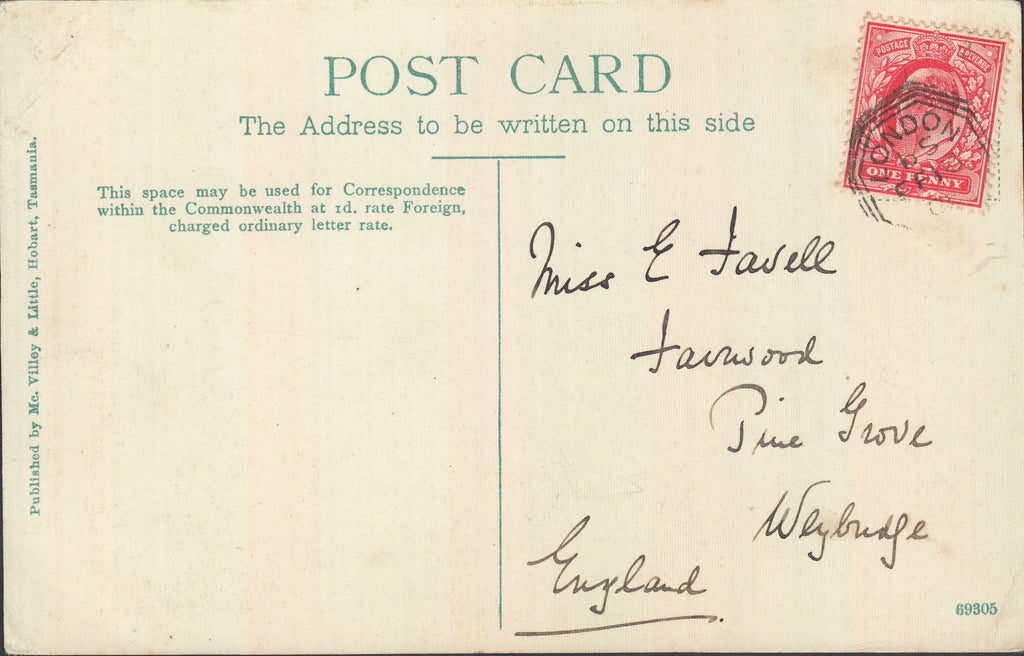 POST CARD
The Address to be written on this side
This space may be used for Correspondence
within the Commonwealth at 1d. rate Foreign,
charged ordinary letter rate.
Published by Mc. Villey & Little, Hobart, Tasmania.
POSTAGE & REVENUE
ONE PENNY
LONDON
Miss E Favell
Pine Grove
Weybridge
England
69305